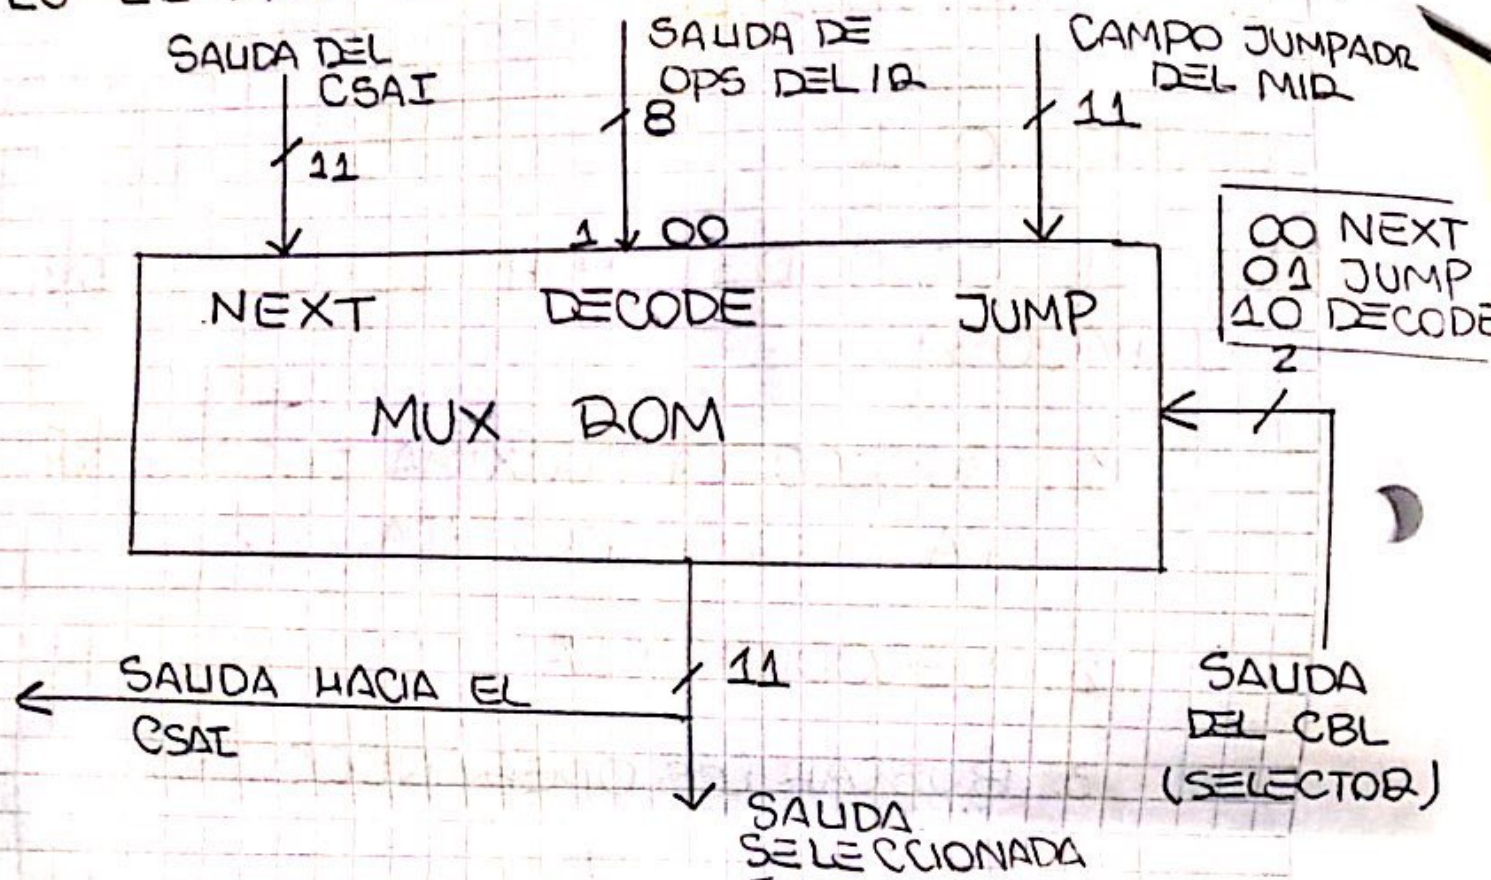 SALIDA DEL
CSAI
11
SALIDA DE
OPS DEL IR
8
CAMPO JUMPADR
DEL MIR
11
1 00
00 NEXT
01 JUMP
10 DECODE
2
NEXT DECODE JUMP
MUX ROM
11
SALIDA HACIA EL
CSAI
SALIDA
DEL CBL
(SELECTOR)
SALIDA
SELECCIONADA